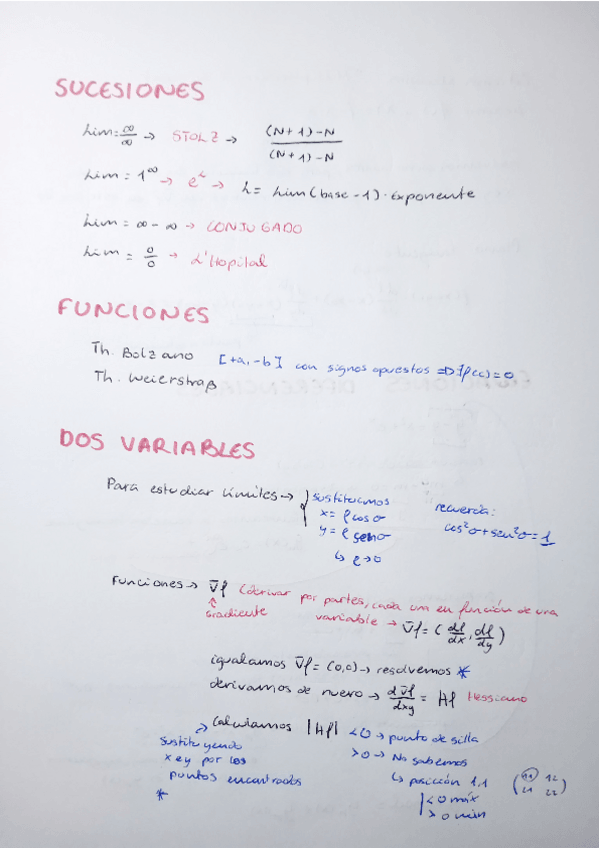 SUCESIONES
lim = ∞/∞ → STOLZ → (N+1)-N / (N+1)-N
lim = 1^∞ → e^L → L = lim (base - 1) · exponente
lim = ∞ - ∞ → CONJUGADO
lim = 0/0 → L'Hopital
FUNCIONES
Th. Bolzano [+a, -b] con signos opuestos => ∃ f(c) = 0
Th. Weierstraß
DOS VARIABLES
Para estudiar límites → { sustituimos
x = ρ cos σ
y = ρ sen σ
↳ ρ → 0
recuerda:
cos²σ + sen²σ = 1
Funciones → ∇f (derivar por partes, cada una en función de una
↑ Gradiente
variable → ∇f = (df/dx, df/dy)
igualamos ∇f = (0,0) → resolvemos *
derivamos de nuevo → d∇f/dxy = Hf Hessiano
→ Calculamos |Hf| < 0 → punto de silla
> 0 → No sabemos
↳ posición 1,1 (11 12
21 22)
< 0 máx
> 0 min
sustituyendo
x e y por los
puntos encontrados
*